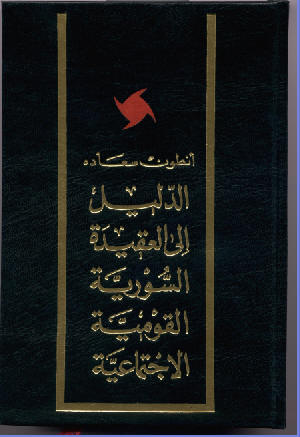 انطون سعاده
الدليل
إلى العقيدة
السورية
القومية
الاجتماعية